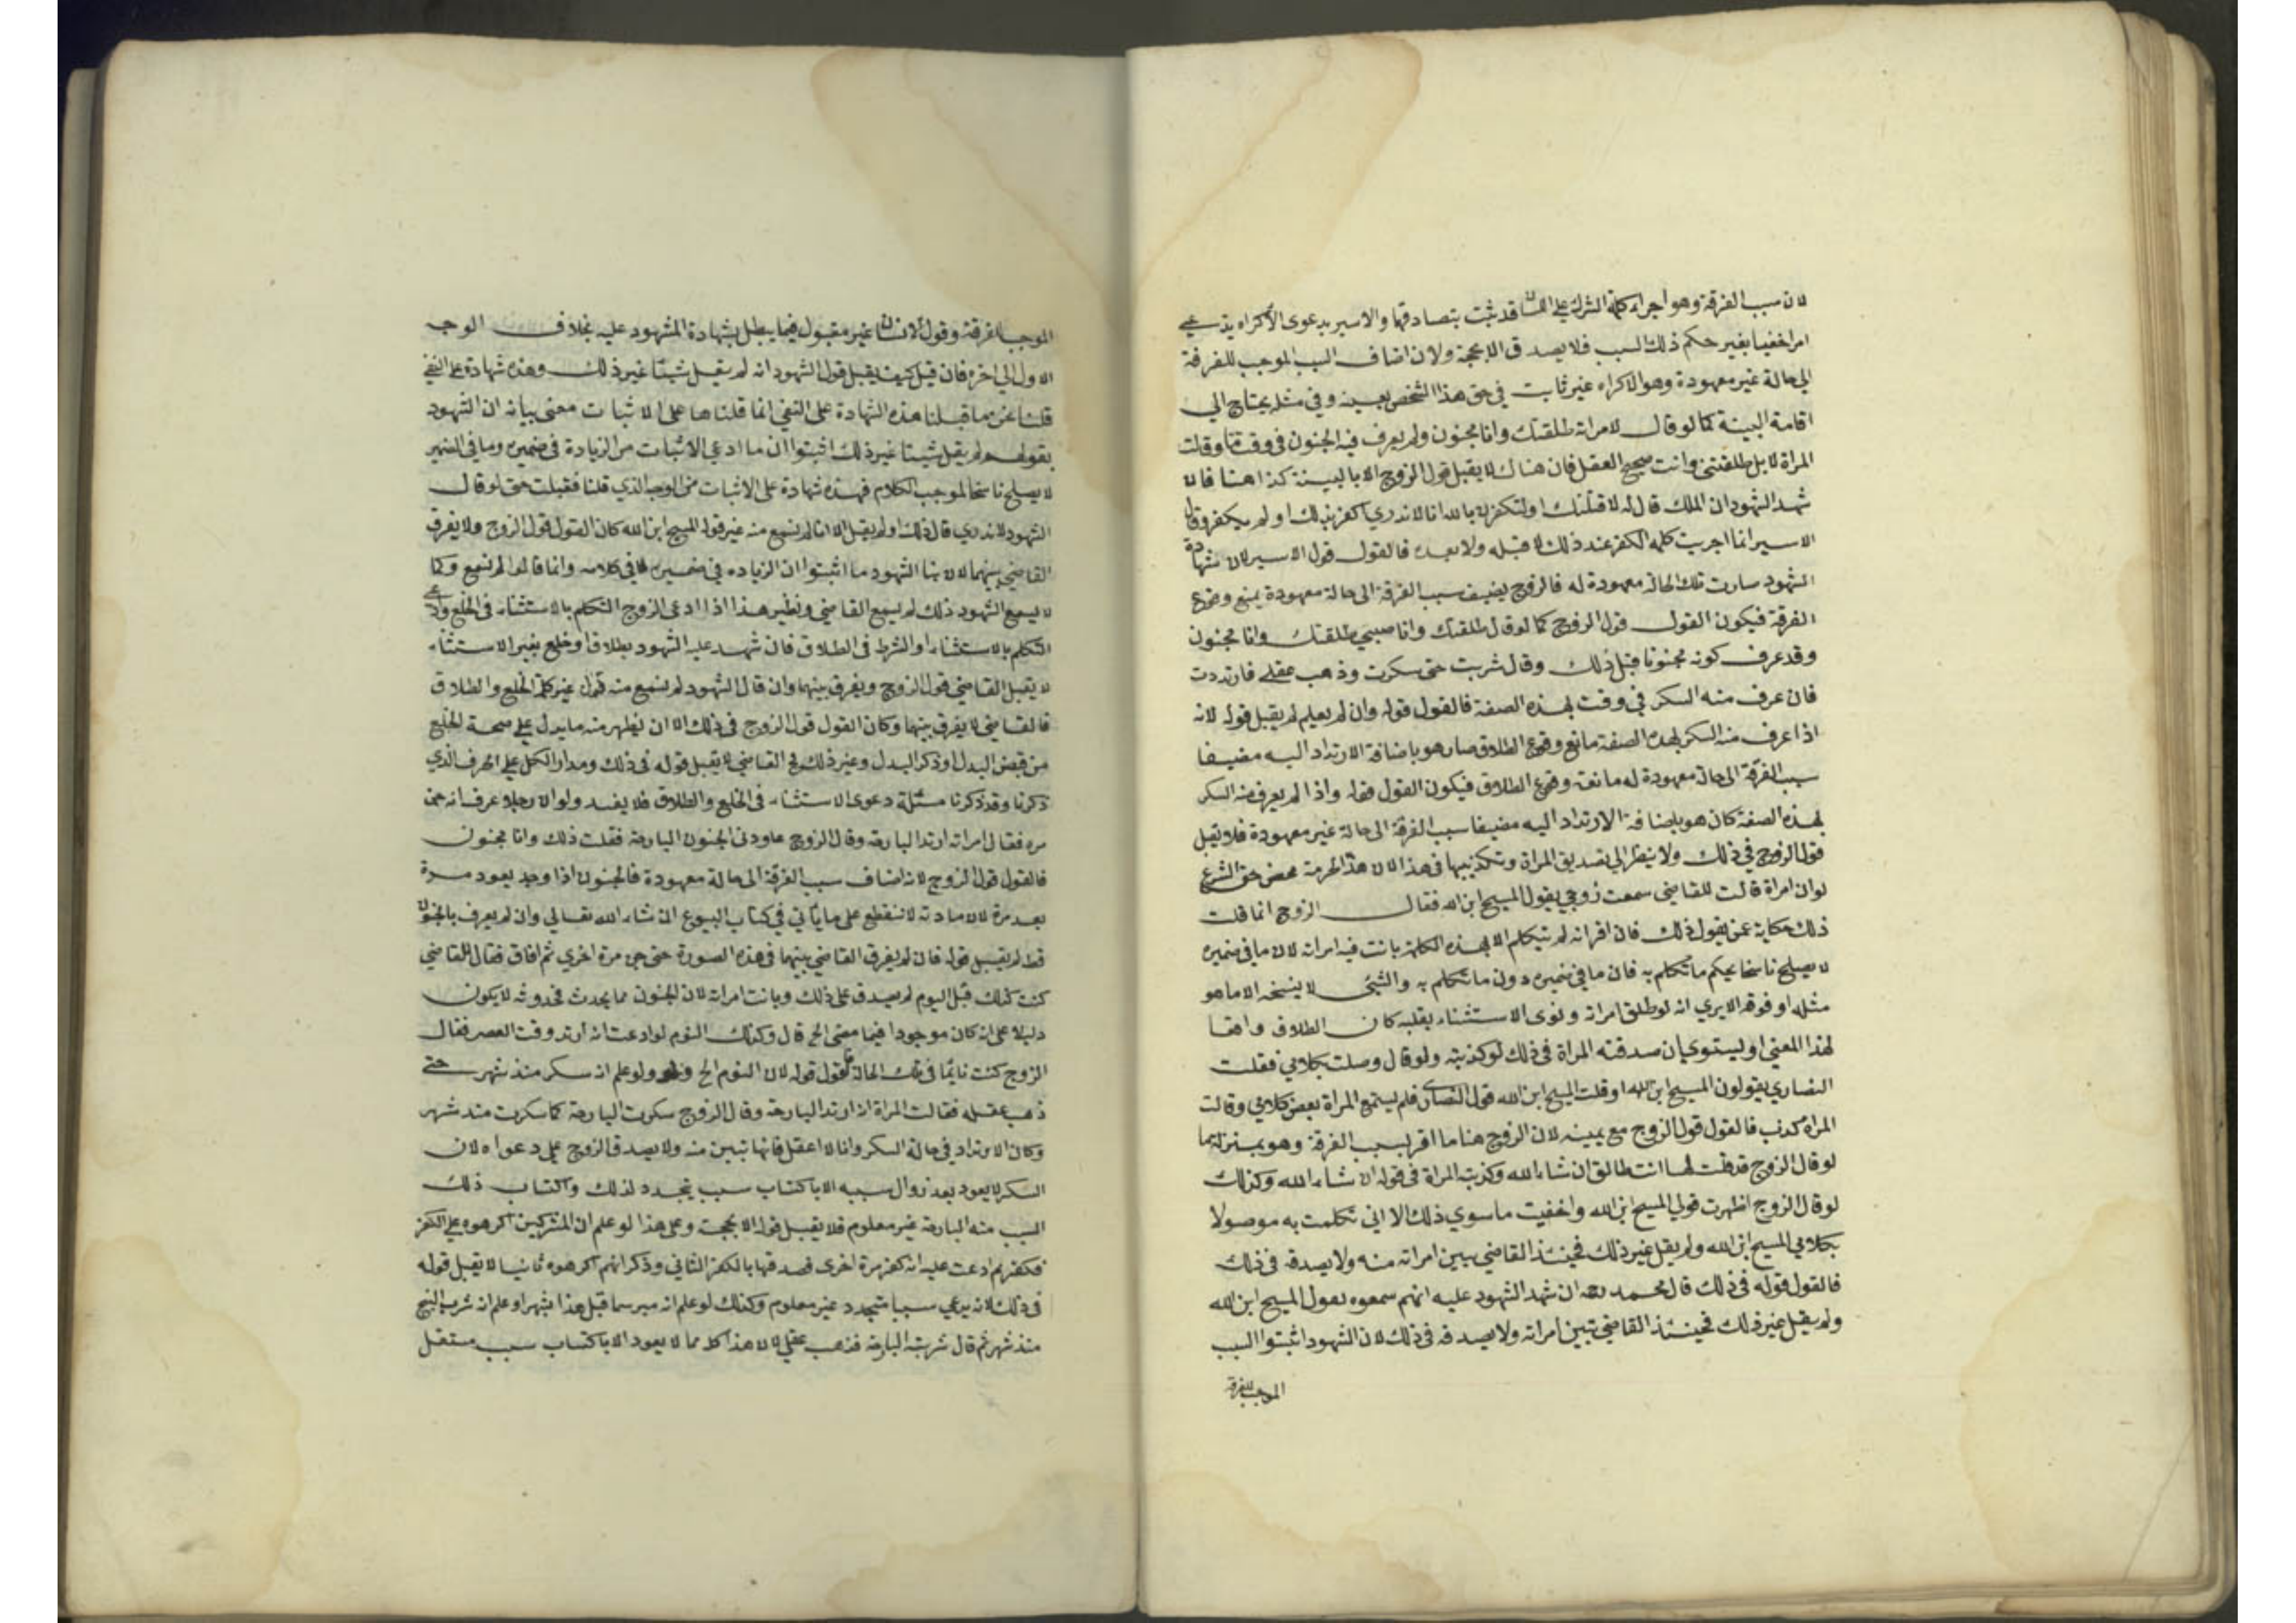 لان سبب الفرقة وهو اجراء كلمة الشرك على اللسان قد ثبت بتصادقهما والاسير بدعوى الاكراه يدعي
امرا خفيا بغير حكم ذلك السبب فلا يصدق الا بحجة ولان اضاف السبب الموجب للفرقة
الى حالة غير معهودة وهو الاكراه غير ثابت في حق هذا الشخص بعينه وفي مثله يحتاج الى
اقامة البينة كما لو قال لامراته طلقتك وانا مجنون ولم يعرف فيه الجنون في وقت ما وقالت
المراة لا بل طلقتني وانت صحيح العقل فان هناك لا يقبل قول الزوج الا بالبينة كذا هنا فان
شهد الشهود ان الملك قال له لاقتلنك او لتكفرن بالله انا لا ندري اكفر بذلك او لم يكفر وقال
الاسير انما اجريت كلمة الكفر عند ذلك لا قبله ولا بعده فالقول قول الاسير لان شهادة
الشهود صارت تلك الحالة معهودة له فالزوج يضيف سبب الفرقة الى حالة معهودة يمنع وقوع
الفرقة فيكون القول قول الزوج كما لو قال طلقتك وانا صبي طلقتك وانا مجنون
وقد عرف كونه مجنونا قبل ذلك وقال شربت حتى سكرت وذهب عقلي فارتددت
فان عرف منه السكر في وقت بهذه الصفة فالقول قوله وان لم يعلم لم يقبل قوله لانه
اذا عرف منه السكر بهذه الصفة مانع وقوع الطلاق صار هو باضافة الارتداد اليه مضيفا
سبب الفرقة الى حالة معهودة له مانعة وقوع الطلاق فيكون القول قوله واذا لم يعرف منه السكر
بهذه الصفة كان هو باضافة الارتداد اليه مضيفا سبب الفرقة الى حالة غير معهودة فلا يقبل
قول الزوج في ذلك ولا ينظر الى تصديق المراة وتكذيبها في هذا لان هذا الحرمة محض حق الشرع
لو ان امراة قالت للقاضي سمعت زوجي يقول المسيح ابن الله فقال الزوج انما قلت
ذلك حكاية عمن يقول ذلك فان اقر انه لم يتكلم الا بهذه الكلمة بانت فيه امراته لان ما في ضميره
لا يصلح ناسخا بحكم ما تكلم به فان ما في ضميره دون ما تكلم به والشئ لا ينسخه الا ما هو
مثله او فوقه الا يرى انه لو طلق امراته ونوى الاستثناء بقلبه كان الطلاق واقعا
لهذا المعنى او ليستوي ان صدقته المراة في ذلك لو كذبته ولو قال وصلت بكلامي فقلت
النصارى يقولون المسيح ابن الله او قلت المسيح ابن الله قول النصارى فلم يستمع المراة بعض كلامي وقالت
المراة كذب فالقول قول الزوج مع يمينه لان الزوج هنا ما اقر بسبب الفرقة وهو بمنزلة ما
لو قال الزوج قد قلت لها انت طالق ان شاء الله وكذبته المراة في قوله ان شاء الله وكذلك
لو قال الزوج اظهرت قولي المسيح ابن الله واخفيت ما سوى ذلك الا اني تكلمت به موصولا
بكلامي المسيح ابن الله ولم يقل غير ذلك فحينئذ القاضي يبين امراته منه ولا يصدقه في ذلك
فالقول قوله في ذلك قال محمد رحمه ان شهد الشهود عليه انهم سمعوه يقول المسيح ابن الله
ولم يقل غير ذلك فحينئذ القاضي تبين امراته ولا يصدقه في ذلك لان الشهود اثبتوا السبب
الموجب للفرقة
الموجب للفرقة وقول الانسان غير مقبول فيما يبطل بشهادة المشهود عليه بخلاف الوجه
الاول الى اخره فان قيل كيف يقبل قول الشهود انه لم يقل شيئا غير ذلك وهذه شهادة على النفي
قلنا نحن ما قبلنا هذه الشهادة على النفي انما قلناها على الاثبات معنى بيانه ان الشهود
بقولهم ولم يقل شيئا غير ذلك اثبتوا ان ما ادعى الاثبات من الزيادة في ضميره وما في الضمير
لا يصلح ناسخا لموجب الكلام فهذه شهادة على الاثبات من الوجه الذي قلنا فقبلت حتى لو قال
الشهود لا ندري قال ذلك او لم يقل الا انا لم نسمع منه غير قوله المسيح ابن الله كان القول قول الزوج ولا يفرق
القاضي بينهما لان هنا الشهود ما اثبتوا ان الزيادة في ضميره لا في كلامه وانما قالوا لم نسمع وكما
لا يسمع الشهود ذلك لم يسمع القاضي ونظير هذا اذا ادعى الزوج التكلم بالاستثناء في الخلع وادعى
التكلم بالاستثناء او الشرط في الطلاق فان شهد عليه الشهود بطلاق او خلع بغير الاستثناء
لا يقبل القاضي قول الزوج ويفرق بينهما وان قال الشهود لم نسمع منه قول غير كلمة الخلع والطلاق
فالقاضي لا يفرق بينهما وكان القول قول الزوج في ذلك الا ان يظهر منه ما يدل على صحة الخلع
من قبض البدل او ذكر البدل وغير ذلك فح القاضي لا يقبل قوله في ذلك ومدار الكل على الحرف الذي
ذكرنا وقد ذكرنا مسئلة دعوى الاستثناء في الخلع والطلاق فلا يفيد ولو ان رجلا عرف انه جن
مرة فقال امراته ارتد البارحة وقال الزوج عاودني الجنون البارحة فقلت ذلك وانا مجنون
فالقول قول الزوج لانه اضاف سبب الفرقة الى حالة معهودة فالجنون اذا وجد يعود مرة
بعد مرة لان مادته لا تنقطع على ما ياتي في كتاب البيوع ان شاء الله تعالى وان لم يعرف بالجنون
قط لم يقبل قوله فان لم يفرق القاضي بينهما في هذه الصورة حتى جن مرة اخرى ثم افاق فقال للقاضي
كنت كذلك قبل اليوم لم يصدق على ذلك وبانت امراته لان الجنون مما يحدث فحدوثه لا يكون
دليلا على انه كان موجودا فيما مضى الخ قال وكذلك النوم لو ادعت انه ارتد وقت العصر فقال
الزوج كنت نائما في تلك الحالة فالقول قوله لان النوم الخ ولو علم انه سكر منذ شهر حتى
ذهب عقله فقالت المراة انه ارتد البارحة وقال الزوج سكرت البارحة كما سكرت منذ شهر
وكان الارتداد في حالة السكر وانا لا اعقل فانها تبين منه ولا يصدق الزوج على دعواه لان
السكر لا يعود بعد زوال سببه الا باكتساب سبب يتجدد لذلك واكتساب ذلك
السبب منه البارحة غير معلوم فلا يقبل قوله الا بحجة وعلى هذا لو علم ان المشركين اكرهوه على الكفر
فكفر ثم ادعت عليه انه كفر مرة اخرى فصدقها بالكفر الثاني وذكر انهم اكرهوه ثانيا لا يقبل قوله
في ذلك لانه يدعي سببا متجدد غير معلوم وكذلك لو علم انه مبرسما قبل هذا بشهر او علم انه شرب البنج
منذ شهر ثم قال شربته البارحة فذهب عقلي لان هذا كله مما لا يعود الا باكتساب سبب مستقل